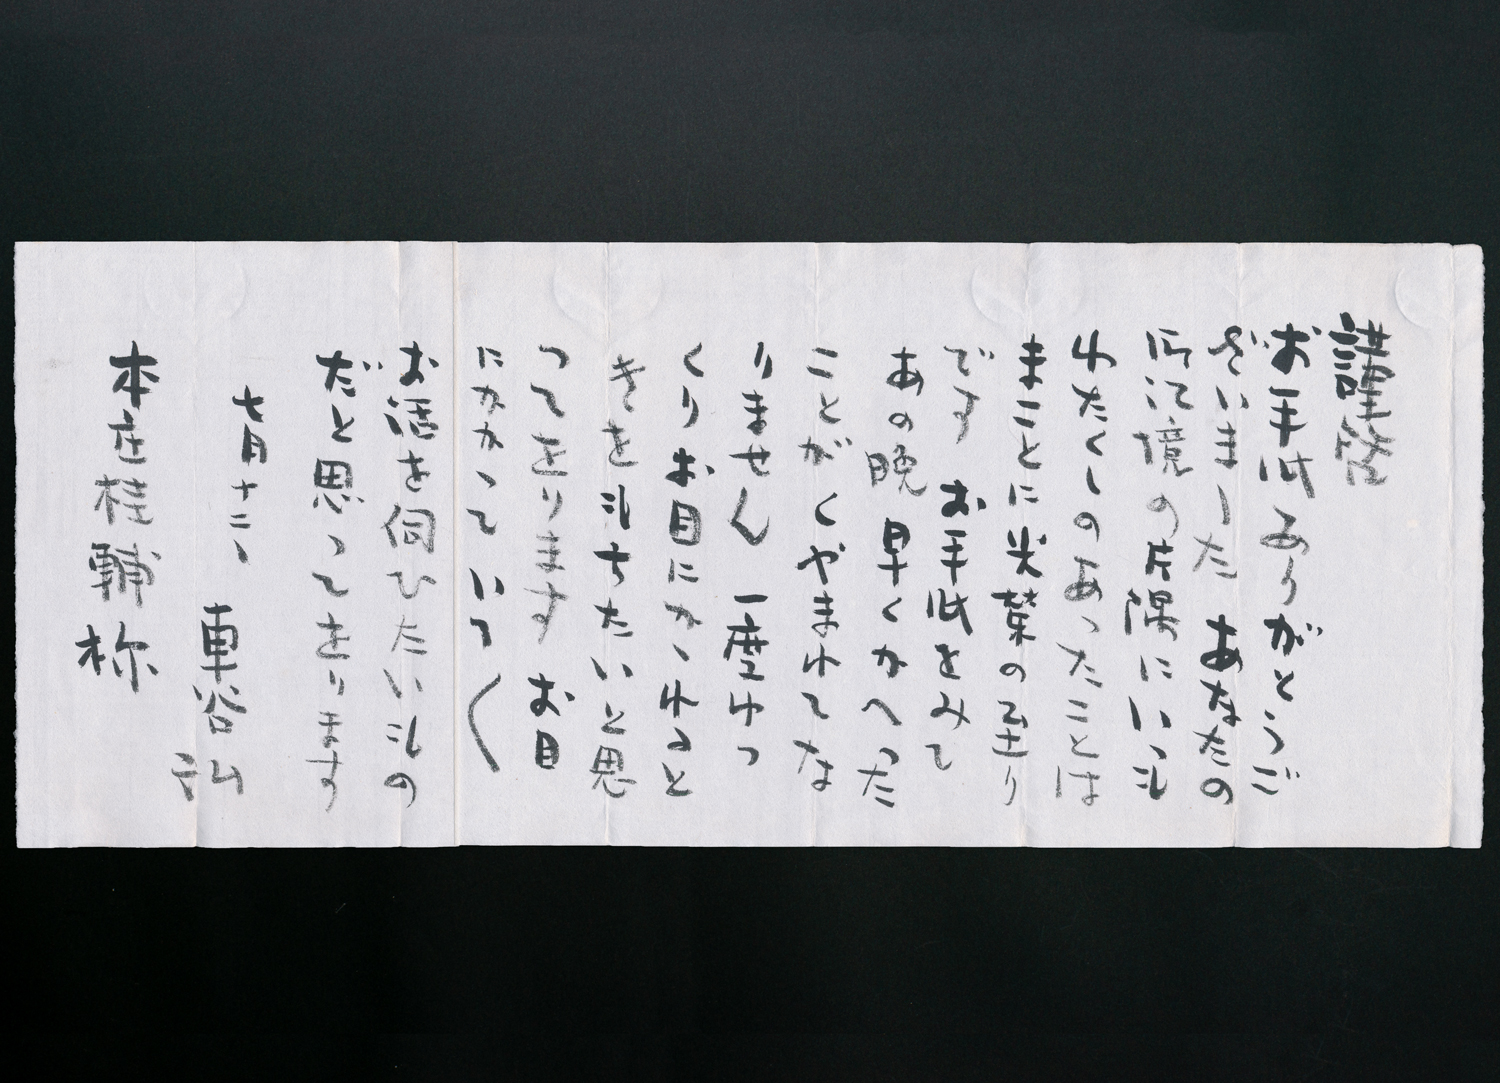 謹啓
お手紙ありがとうご
ざいました あなたの
所江境の片隅にいつも
わたくしのあったことは
まことに光栄の至り
です お手紙をみて
あの晩 早くかへった
ことがくやまれてな
りません 一度ゆっ
くりお目にかゝれると
きを もちたいと思
つてをります お目
にかかつていろ〱
お話を伺ひたいもの
だと思つてをります
七月十二、
車谷弘
本庄桂輔様